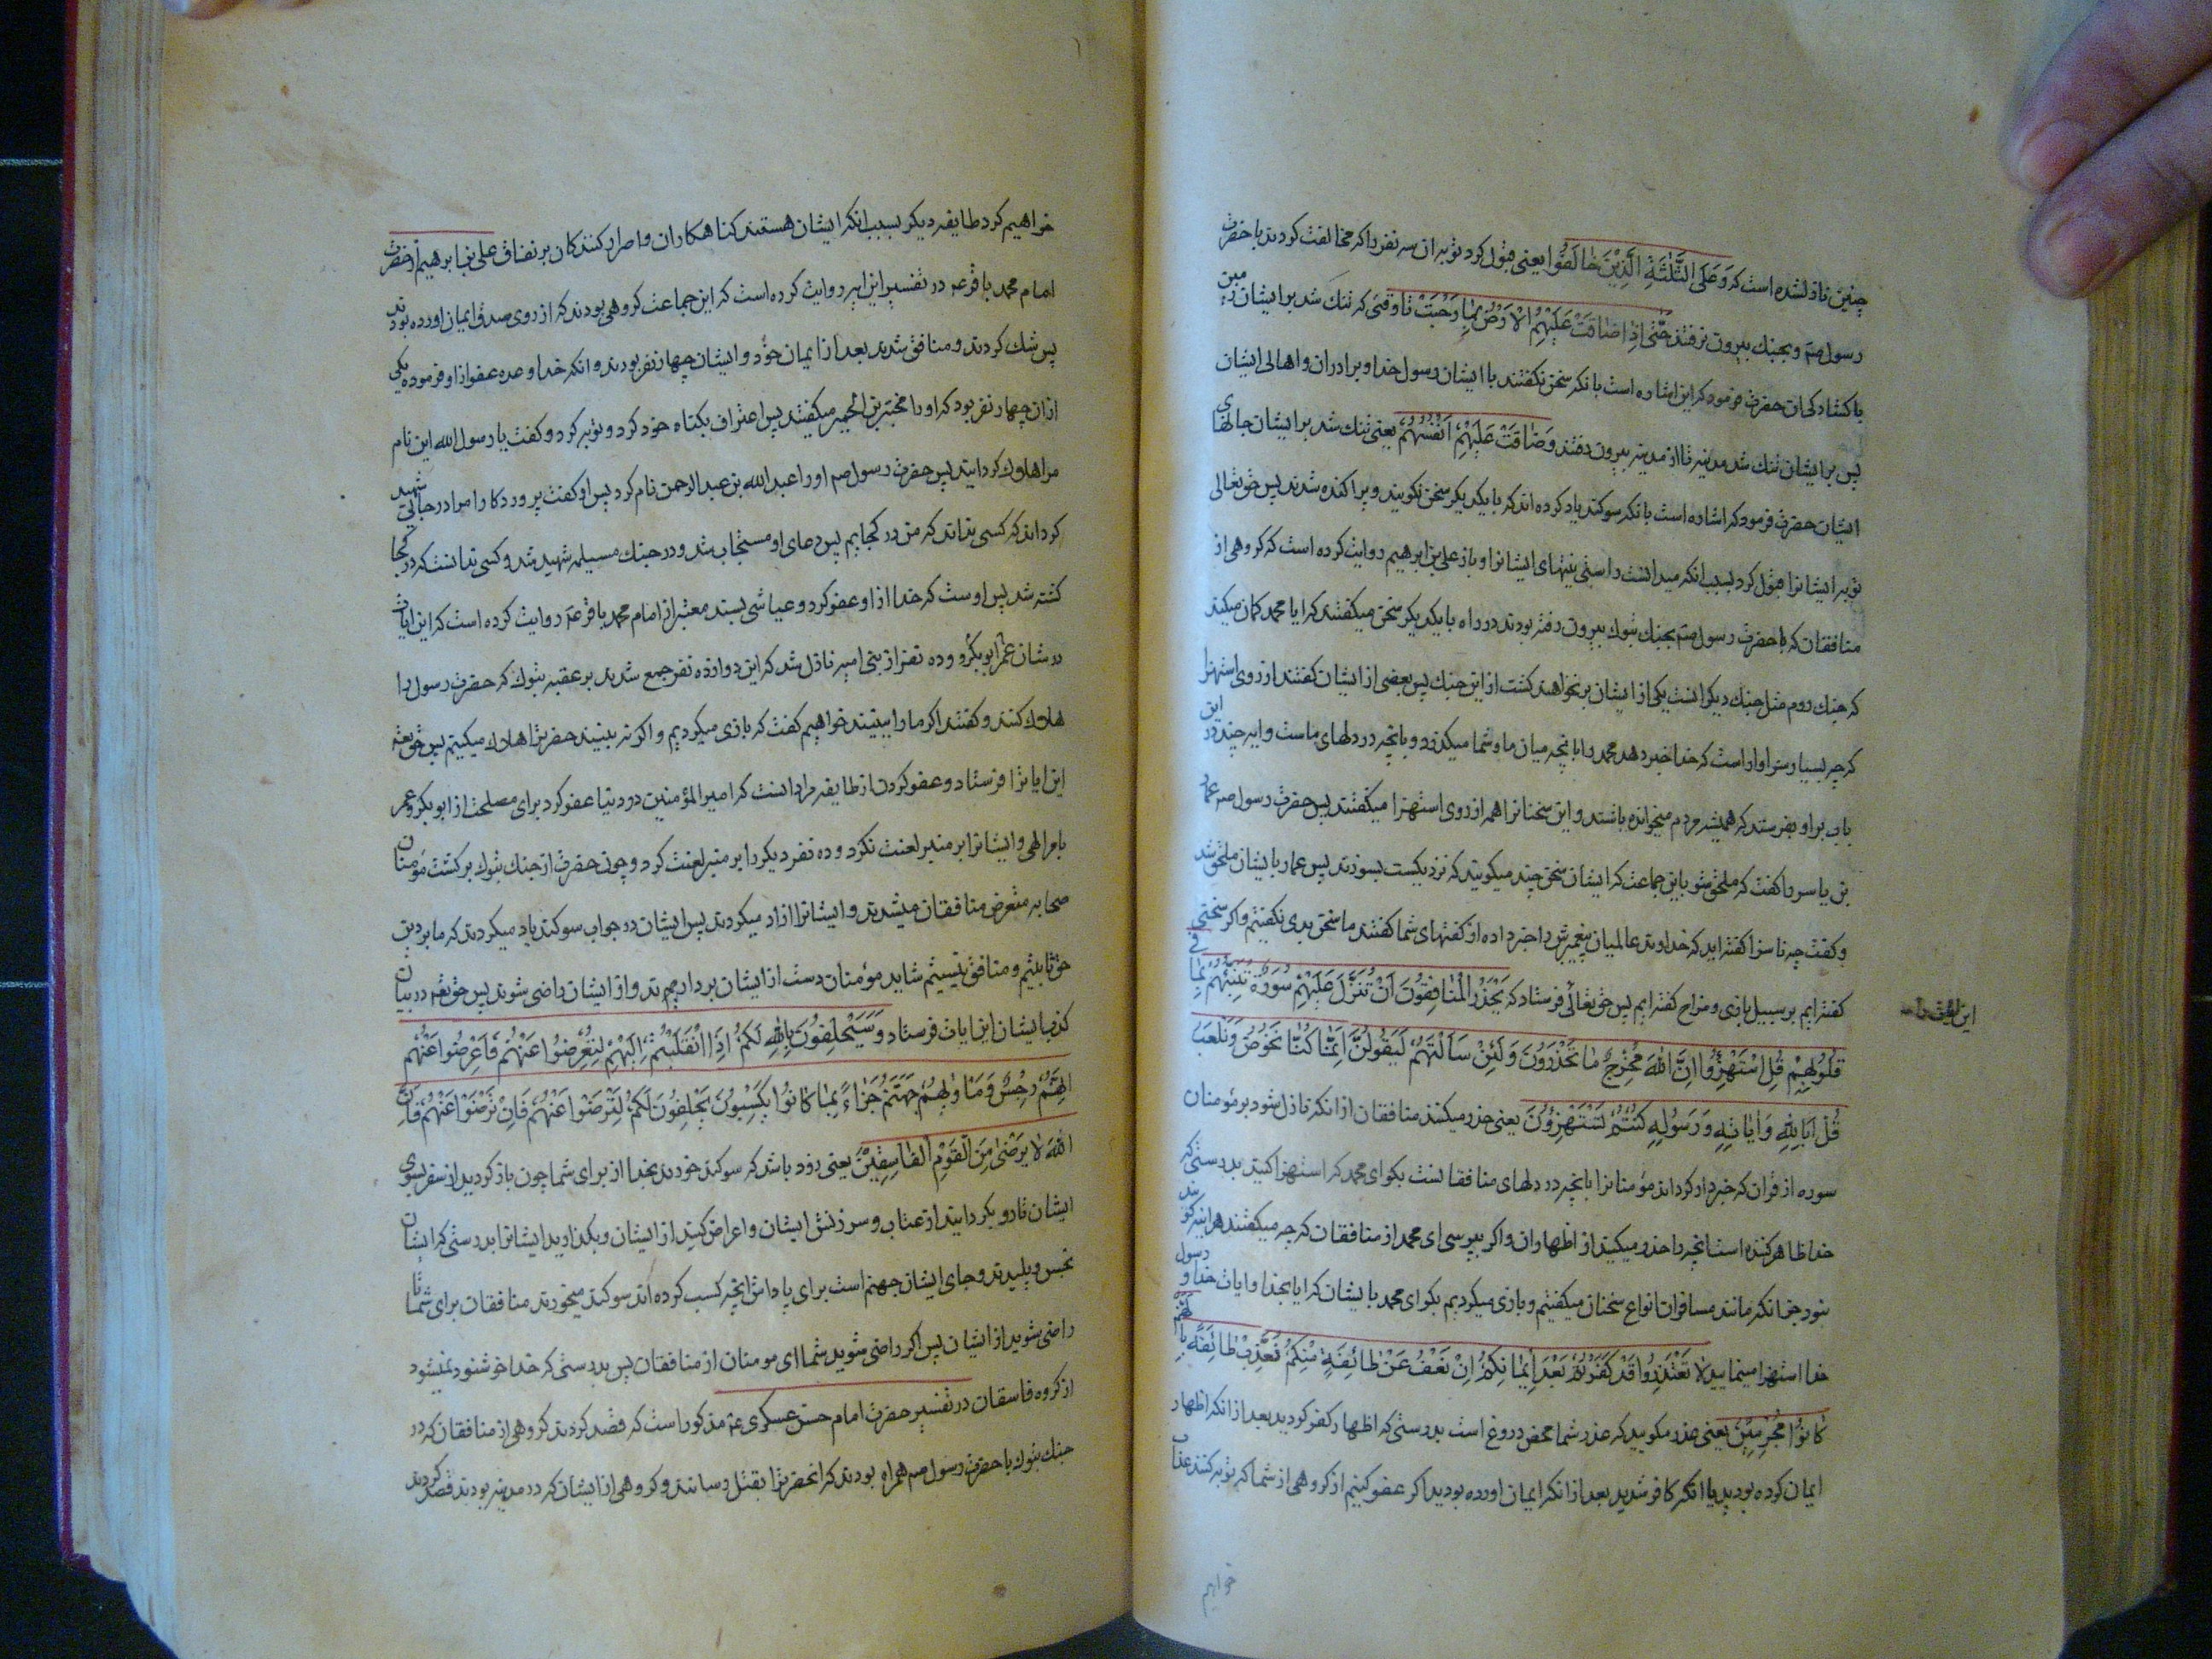 چنین نازلشده است که وَعَلَی الثَّلٰثَةِ الَّذِیْنَ خٰالَفُوا یعنی قبول کرد توبه ان سه نفر را که مخالفت کردند با حضرت
رسول صم و بجنك بیرون نرفتند حَتّٰی اِذٰا ضٰاقَتْ عَلَیْهِمُ الْاَرْضُ بِمٰا رَحُبَتْ تا وقتی که تنك شد بر ایشان زمین
با کشادکی ان حضرت فرمود که این اشاره است بانکه سخن نکفتند با ایشان رسول خدا و برادران و اهالی ایشان
پس بر ایشان تنك شد مدینه تا از مدینه بیرون رفتند وَضٰاقَتْ عَلَیْهِمْ اَنْفُسُهُمْ یعنی تنك شد بر ایشان جانهای
ایشان حضرت فرمود که اشاره است بانکه سوکند یاد کرده اند که با یکدیکر سخن نکویند و پراکنده شدند پس حق تعالی
توبه ایشانرا قبول کرد بسبب انکه میدانست راستی نیتهای ایشانرا و باز علی بن ابرهیم روایت کرده است که کروهی از
منافقان که با حضرت رسول صم بجنك تبوك بیرون رفته بودند در راه با یکدیکر سخن میکفتند که ایا محمد کمان میکند
که جنك روم مثل جنك دیکرانست یکی از ایشان بر نخواهند کشت از این جنك پس بعضی از ایشان کفتند از روی استهزا
که چه بسیار سزاوار است که خدا خبر دهد محمد را بانچه میان ما و شما میکذرد و بانچه در دلهای ماست و ایه چند در این
باب بر او بفرستد که همیشه مردم میخوانده باشند و این سخنانرا همه از روی استهزا میکفتند پس حضرت رسول صم عمار
بن یاسر را کفت که ملحق شو باین جماعت که ایشان سخنی چند میکویند که نزدیکست بسوزند پس عمار بایشان ملحق شد
و کفت چه ناسزا کفته اید که خداوند عالمیان پیغمبرش را خبر داده از کفتهای شما کفتند ما سخن بدی نکفتیم و اکر سخنی
کفته ایم بر سبیل بازی و مزاح کفته ایم پس حق تعالی فرستاد که یَحْذَرُ الْمُنٰافِقُونَ اَنْ تُنَزَّلَ عَلَیْهِمْ سُورَةٌ تُنَبِّئُهُمْ بِمٰا فی
قُلُوبِهِمْ قُلِ اسْتَهْزِؤُا اِنَّ اللّٰهَ مُخْرِجٌ مٰا تَحْذَرُونَ وَلَئِنْ سَاَلْتَهُمْ لَیَقُولُنَّ اِنَّمٰا کُنّٰا نَخُوضُ وَنَلْعَبُ
قُلْ اَبِاللّٰهِ وَاٰیٰاتِهِ وَرَسُولِهِ کُنْتُمْ تَسْتَهْزِؤُنَ یعنی حذر میکنند منافقان از انکه نازل شود بر مؤمنان
سوره از قران که خبردار کرداند مؤمنانرا بانچه در دلهای منافقانست بکو ای محمد که استهزا کنید بدرستی که
خدا ظاهر کننده است انچه را حذر میکنید از اظهار ان و اکر بپرسی ای محمد از منافقان که چه میکفتند هراینه کویند
نبود جز انکه مانند مسافران انواع سخنان میکفتیم و بازی میکردیم بکو ای محمد بایشان که ایا بخدا و ایات خدا و رسول
خدا استهزا مینمایید لٰا تَعْتَذِرُوا قَدْ کَفَرْتُمْ بَعْدَ اِیْمٰانِکُمْ اِنْ نَعْفُ عَنْ طٰائِفَةٍ مِنْکُمْ نُعَذِّبْ طٰائِفَةً بِاَنَّهُمْ
کٰانُوا مُجْرِمِیْنَ یعنی عذر مکویید که عذر شما محض دروغ است بدرستی که اظهار کفر کردید بعد از انکه اظهار
ایمان کرده بودید یا انکه کافر شدید بعد از انکه ایمان اورده بودید اکر عفو کنیم از کروهی از شما که توبه کنند عذاب
خواهیم
خواهیم کرد طایفه دیکر بسبب انکه ایشان هستند کناهکاران و اصرار کنندکان بر نفاق علی بن ابرهیم از حضرت
امام محمد باقر عم در تفسیر این ایه روایت کرده است که این جماعت کروهی بودند که از روی صدق ایمان اورده بودند
پس شك کردند و منافق شدند بعد از ایمان خود و ایشان چهار نفر بودند و انکه خدا وعده عفو از او فرموده یکی
از ان چهار نفر بود که او را مختبر بن الحمیر میکفتند پس اعتراف بکناه خود کرد و توبه کرد و کفت یا رسول الله این نام
مرا هلاك کردانید پس حضرت رسول صم او را عبد الله بن عبد الرحمن نام کرد پس او کفت پروردکارا مرا در جائی شهید
کردان که کسی نداند که من در کجایم پس دعای او مستجاب شد و در جنك مسیلمه شهید شد و کسی ندانست که در کجا
کشته شد پس اوست که خدا از او عفو کرد و عیاشی بسند معتبر از امام محمد باقر عم روایت کرده است که این ایات
در شان عمر و ابو بکر و ده نفر از بنی امیه نازل شد که این دوازده نفر جمع شدند بر عقبه تبوك که حضرت رسول را
هلاك کنند و کفتند اکر ما را ببینند خواهیم کفت که بازی میکردیم و اکر نه بینند حضرترا هلاك میکنیم پس حق تعم
این ایاترا فرستاد و عفو کردن از طایفه مراد انست که امیر المؤمنین در دنیا عفو کرد برای مصلحت از ابو بکر و عمر
بامر الهی و ایشانرا بر منبر لعنت نکرد و ده نفر دیکر را بر منبر لعنت کرد و چون حضرت از جنك تبوك برکشت مؤمنان
صحابه متعرض منافقان میشدند و ایشانرا ازار میکردند پس ایشان در جواب سوکند یاد میکردند که ما بر دین
حق ثابتیم و منافق نیستیم شاید مؤمنان دست از ایشان بردارند و از ایشان راضی شوند پس حق تعم در بیان
کذب ایشان این ایات فرستاد وَسَیَحْلِفُونَ بِاللّٰهِ لَکُمْ اِذَا انْقَلَبْتُمْ اِلَیْهِمْ لِتُعْرِضُوا عَنْهُمْ فَاَعْرِضُوا عَنْهُمْ
اِنَّهُمْ رِجْسٌ وَمَأْوٰیهُمْ جَهَنَّمُ جَزٰاءً بِمٰا کٰانُوا یَکْسِبُونَ یَحْلِفُونَ لَکُمْ لِتَرْضَوْا عَنْهُمْ فَاِنْ تَرْضَوْا عَنْهُمْ فَاِنَّ
اللّٰهَ لٰا یَرْضٰی عَنِ الْقَوْمِ الْفٰاسِقِیْنَ یعنی زود باشد که سوکند خورند بخدا از برای شما چون باز کردید از سفر بسوی
ایشان تا رو بکردانید از عتاب و سرزنش ایشان و اعراض کنید از ایشان و بکذارید ایشانرا بدرستی که ایشان
نجس و پلیدند و جای ایشان جهنم است برای پاداش انچه کسب کرده اند سوکند میخورند منافقان برای شما تا
راضی شوید از ایشان پس اکر راضی شوید شما ای مومنان از منافقان پس بدرستی که خدا خوشنود نمیشود
از کروه فاسقان در تفسیر حضرت امام حسن عسکری عم مذکور است که قصد کردند کروهی از منافقان که در
جنك تبوك با حضرت رسول صم همراه بودند که انحضرترا بقتل رسانند و کروهی از ایشان که در مدینه بودند قصد کردند